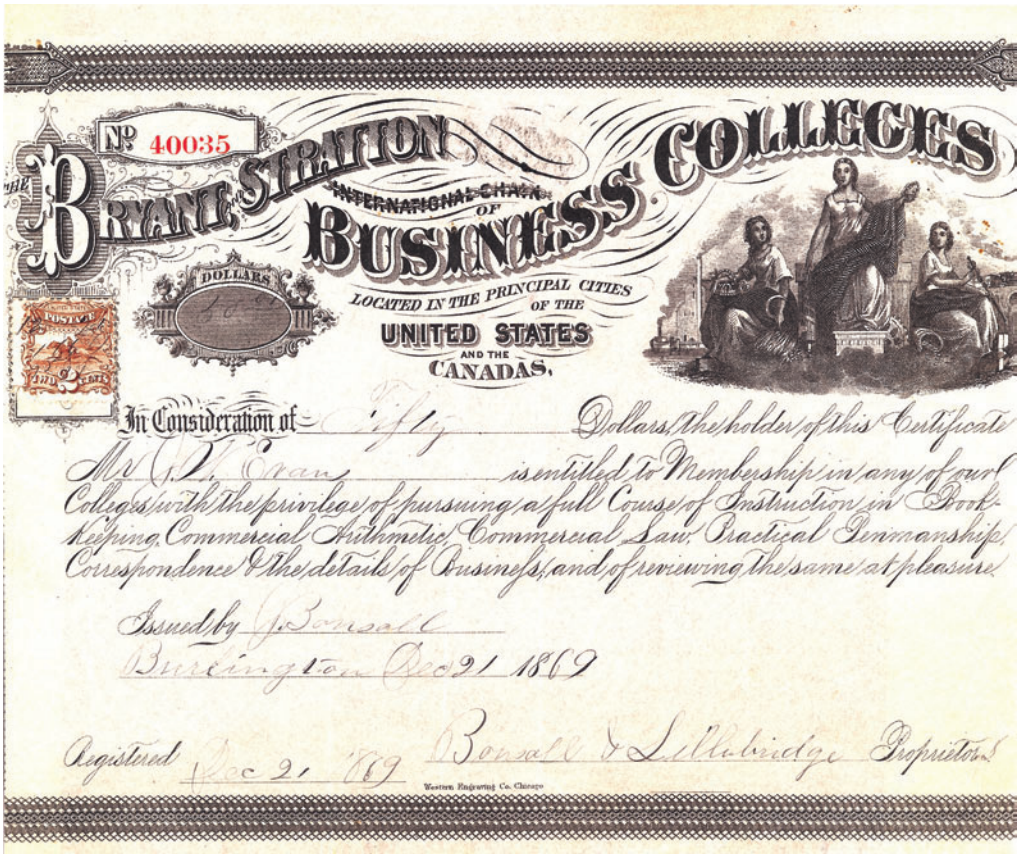 No 40035
THE BRYANT, STRATTON
INTERNATIONAL CHAIN
OF
BUSINESS COLLEGES
LOCATED IN THE PRINCIPAL CITIES
OF THE
UNITED STATES
AND THE
CANADAS.
DOLLARS
UNITED STATES
POSTAGE
TWO 2 CENTS
In Consideration of Fifty Dollars, the holder of this Certificate
Mr Evans is entitled to Membership in any of our
Colleges with the privilege of pursuing a full Course of Instruction in Book-
Keeping, Commercial Arithmetic, Commercial Law, Practical Penmanship,
Correspondence & the details of Business, and of reviewing the same at pleasure.
Issued by J. Bonsall
Burlington Dec 21 1869
Registered Dec 21 1869 Bonsall & Lillibridge Proprietors
Western Engraving Co. Chicago